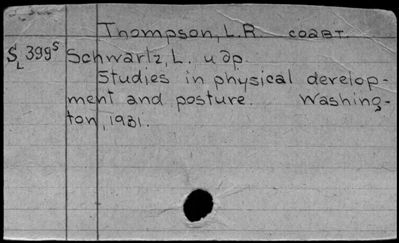 Thompson, L.R. соавт.
S L 399⁵ Schwartz, L. и др.
Studies in physical develop-
ment and posture. Washing-
ton, 1931.